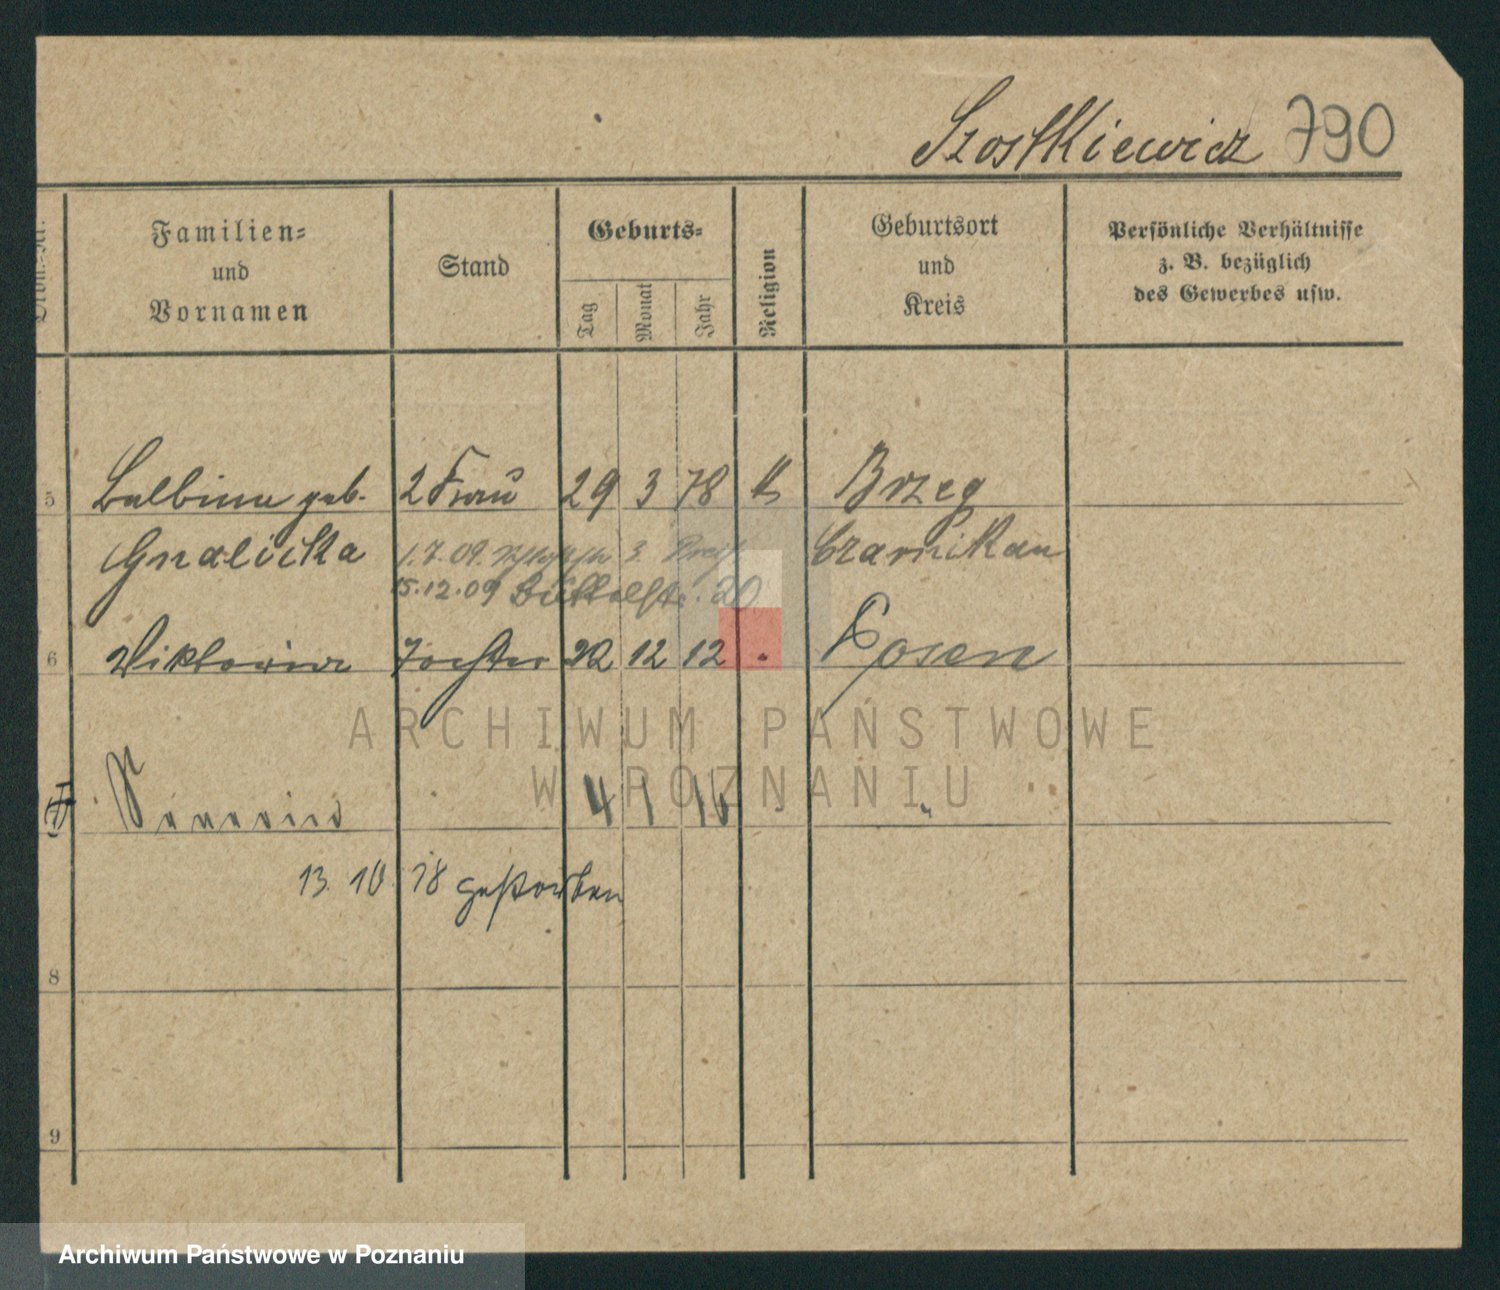 Szostkiewicz 790
Ordn.-Nr.
Familien-
und
Vornamen
Stand
Geburts-
Tag
Monat
Jahr
Religion
Geburtsort
und
Kreis
Persönliche Verhältnisse
z. B. bezüglich
des Gewerbes usw.
5 Balbina geb. 2 Frau 29 3 78 k Brzeg
Gnalicka 1.7.09. 3. Czarnikau
15.12.09 20
6 Viktoria Tochter 22 12 12 " Posen
4 1 16 " "
13. 10 18 gestorben
8
9
ARCHIWUM PAŃSTWOWE
W POZNANIU
Archiwum Państwowe w Poznaniu